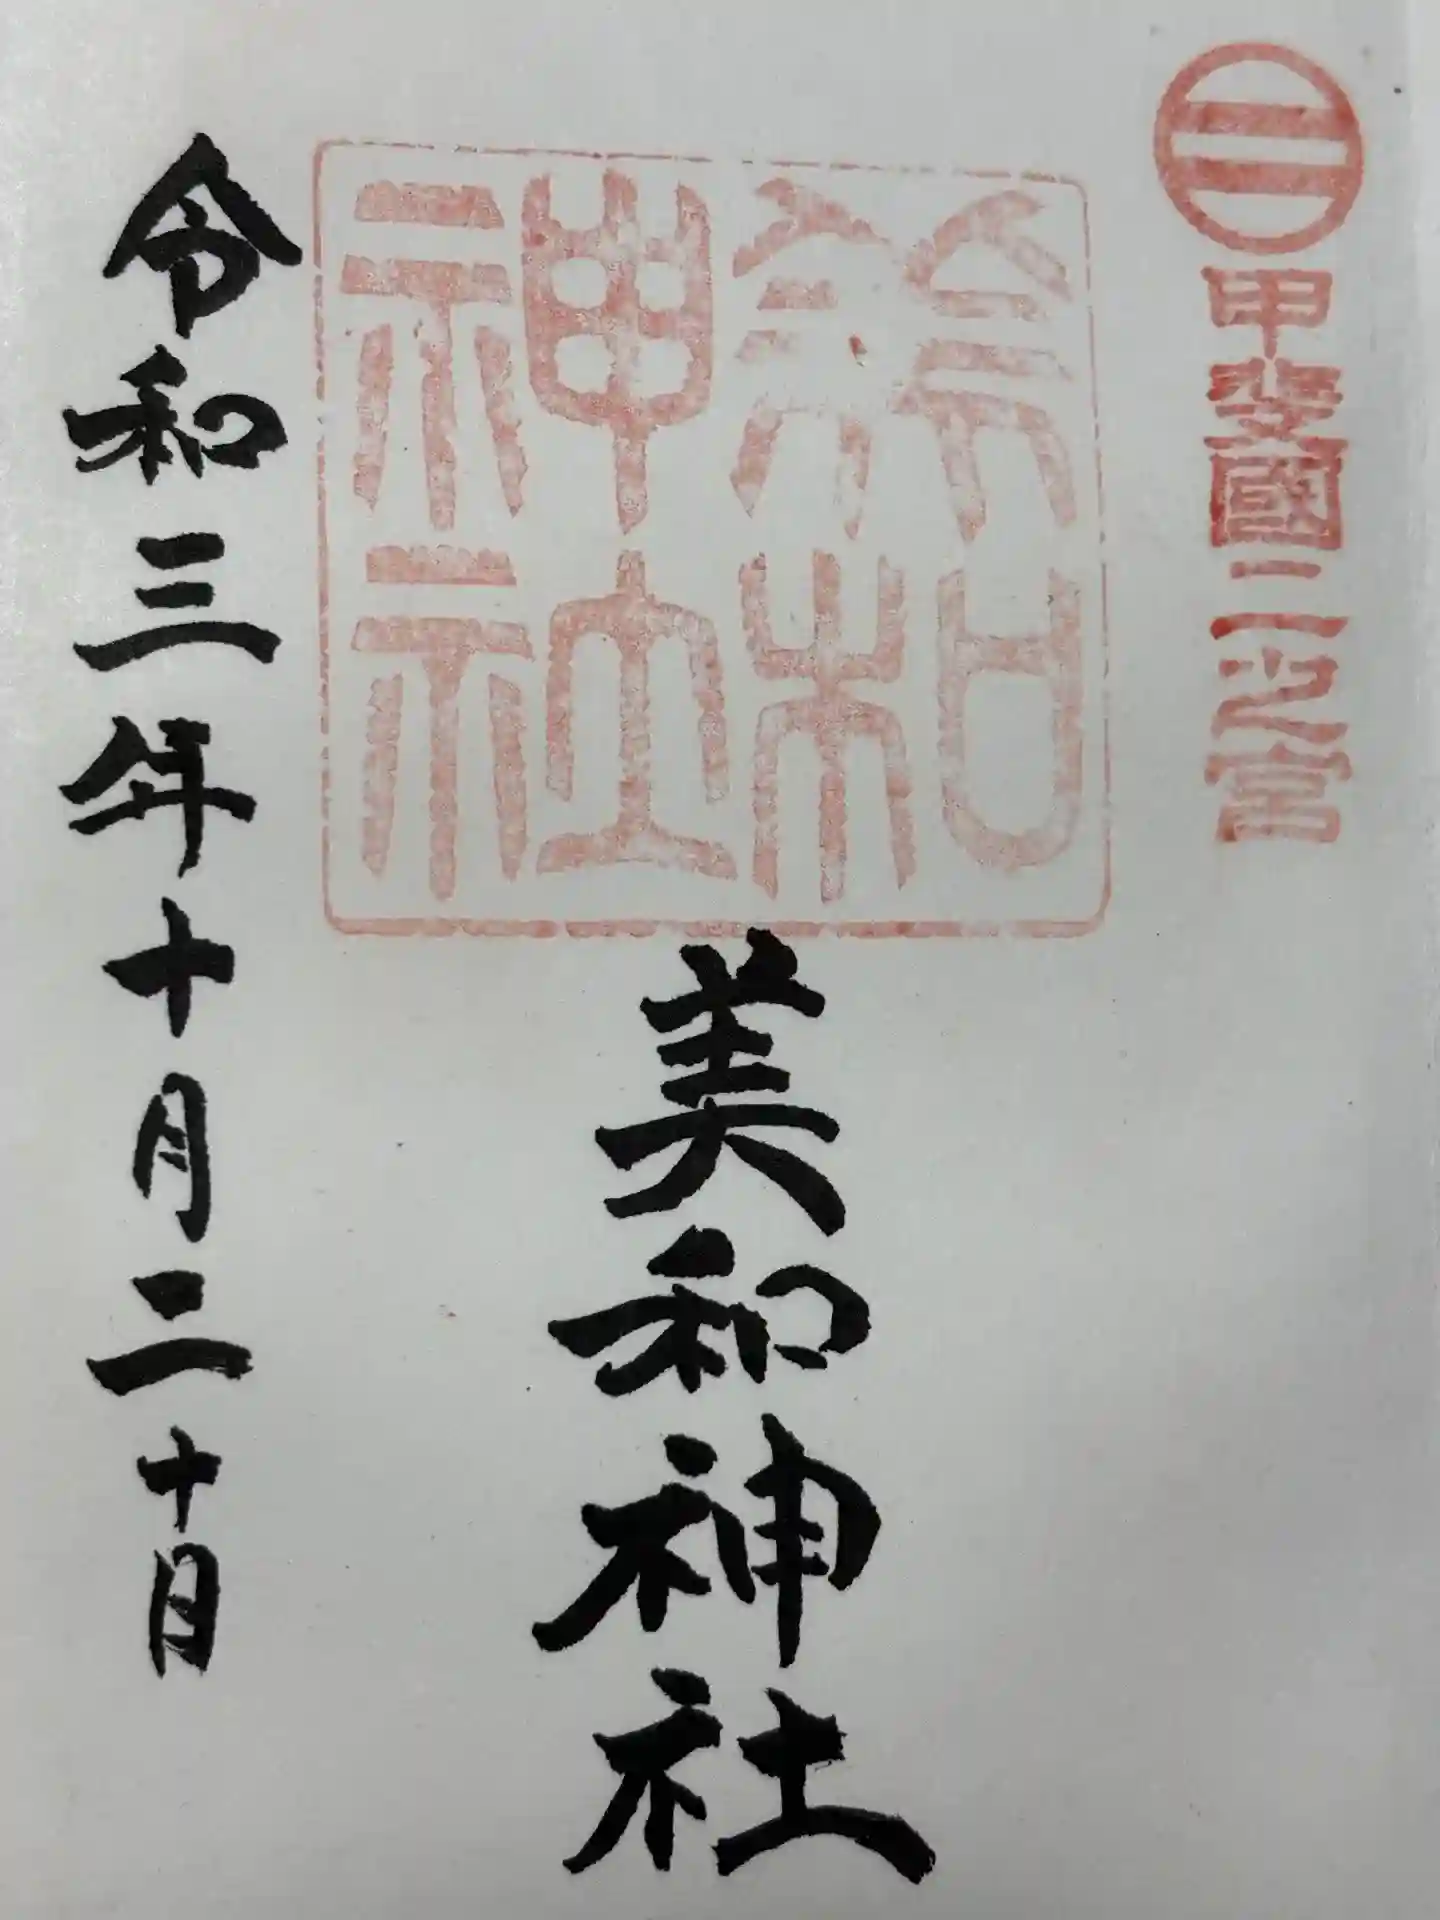 甲斐國二之宮
和神社
美和神社
令和三年十月二十日